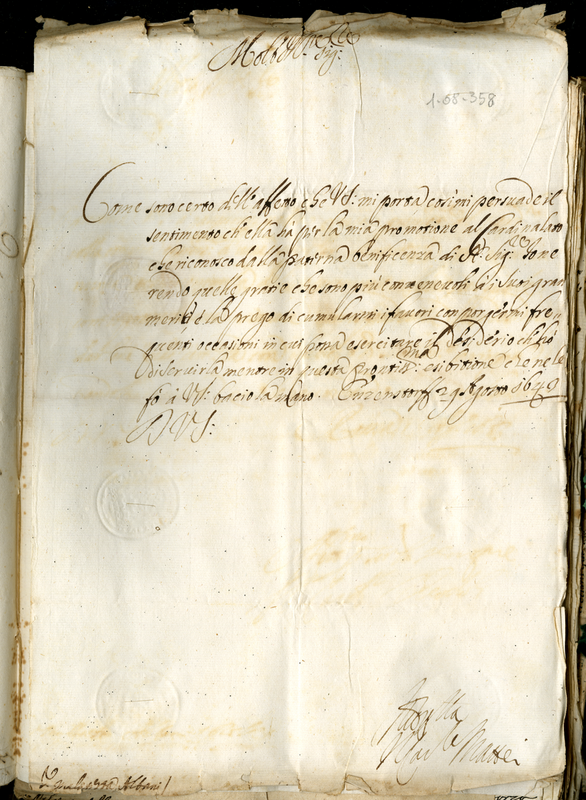 Molto Ill.re
Sig:
1-08-358
Come sono certo dell'affetto che VS: mi porta così mi persuade il
sentimento ch'ella hà per la mia promotione al Cardinalato
che riconosco dalla paterna beneficenza di N. Sig:re Io ne
rendo quelle gratie che sono più convenevoli à i suoi gran
meriti e la prego di cumularmi i favori con porgermi fre
quenti occasioni in cui possa esercitare il desiderio ch'hò
di servirla mentre in questa prontiss:ma esibitione che ne le
fò à VS: bacio la mano. Enzenstorff 29 Agosto 1642
D VS:
Mattei
Albani